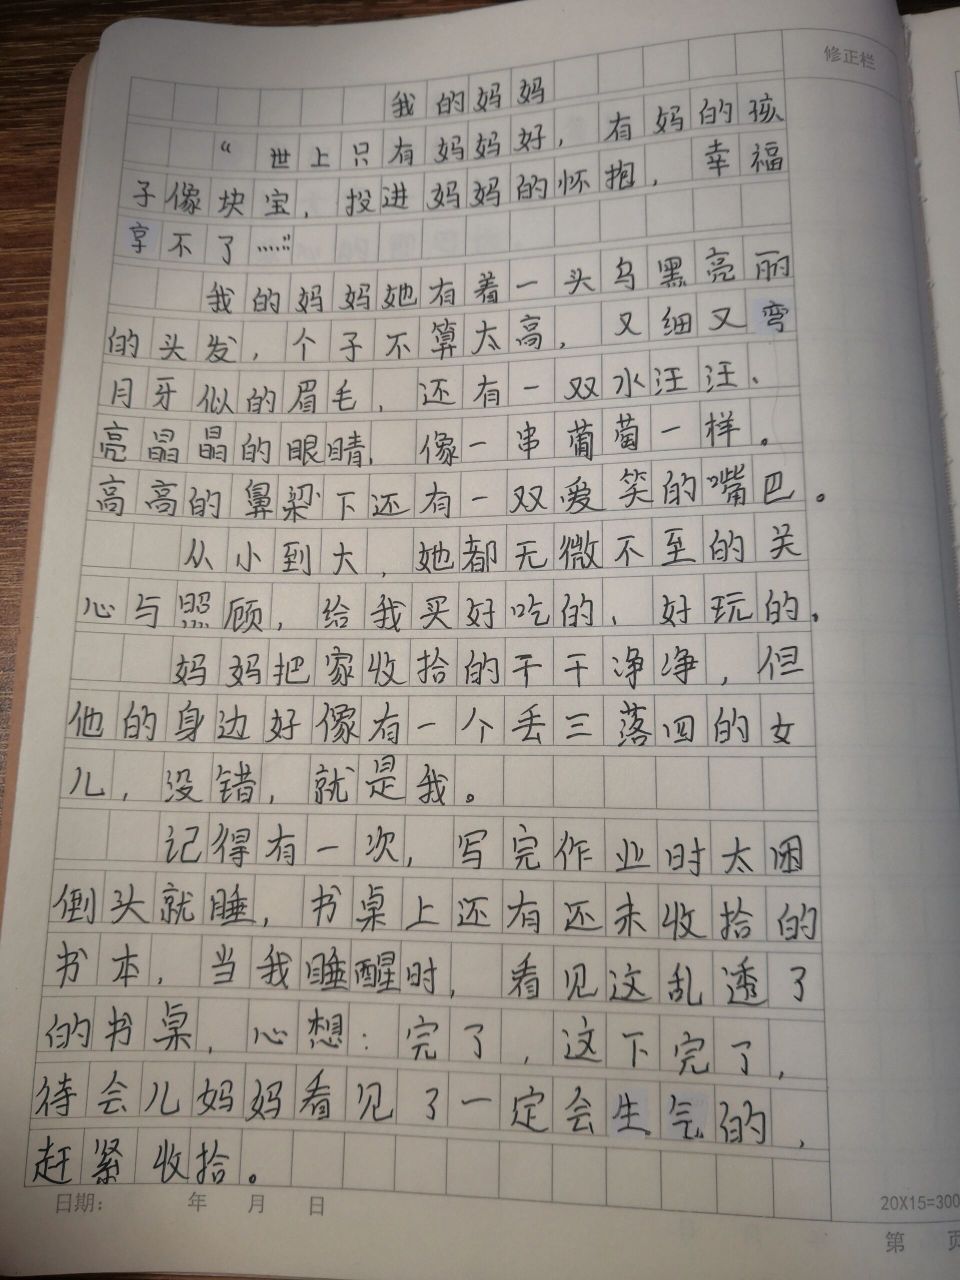 修正栏
我的妈妈
“世上只有妈妈好，有妈的孩
子像块宝，投进妈妈的怀抱，幸福
享不了……”
我的妈妈她有着一头乌黑亮丽
的头发，个子不算太高，又细又弯
月牙似的眉毛，还有一双水汪汪、
亮晶晶的眼睛，像一串葡萄一样。
高高的鼻梁下还有一双爱笑的嘴巴。
从小到大，她都无微不至的关
心与照顾，给我买好吃的、好玩的，
妈妈把家收拾的干干净净，但
他的身边好像有一个丢三落四的女
儿，没错，就是我。
记得有一次，写完作业时太困
倒头就睡，书桌上还有还未收拾的
书本，当我睡醒时，看见这乱透了
的书桌，心想：完了，这下完了，
待会儿妈妈看见了一定会生气的，
赶紧收拾。
日期： 年 月 日
20X15=300
第 页